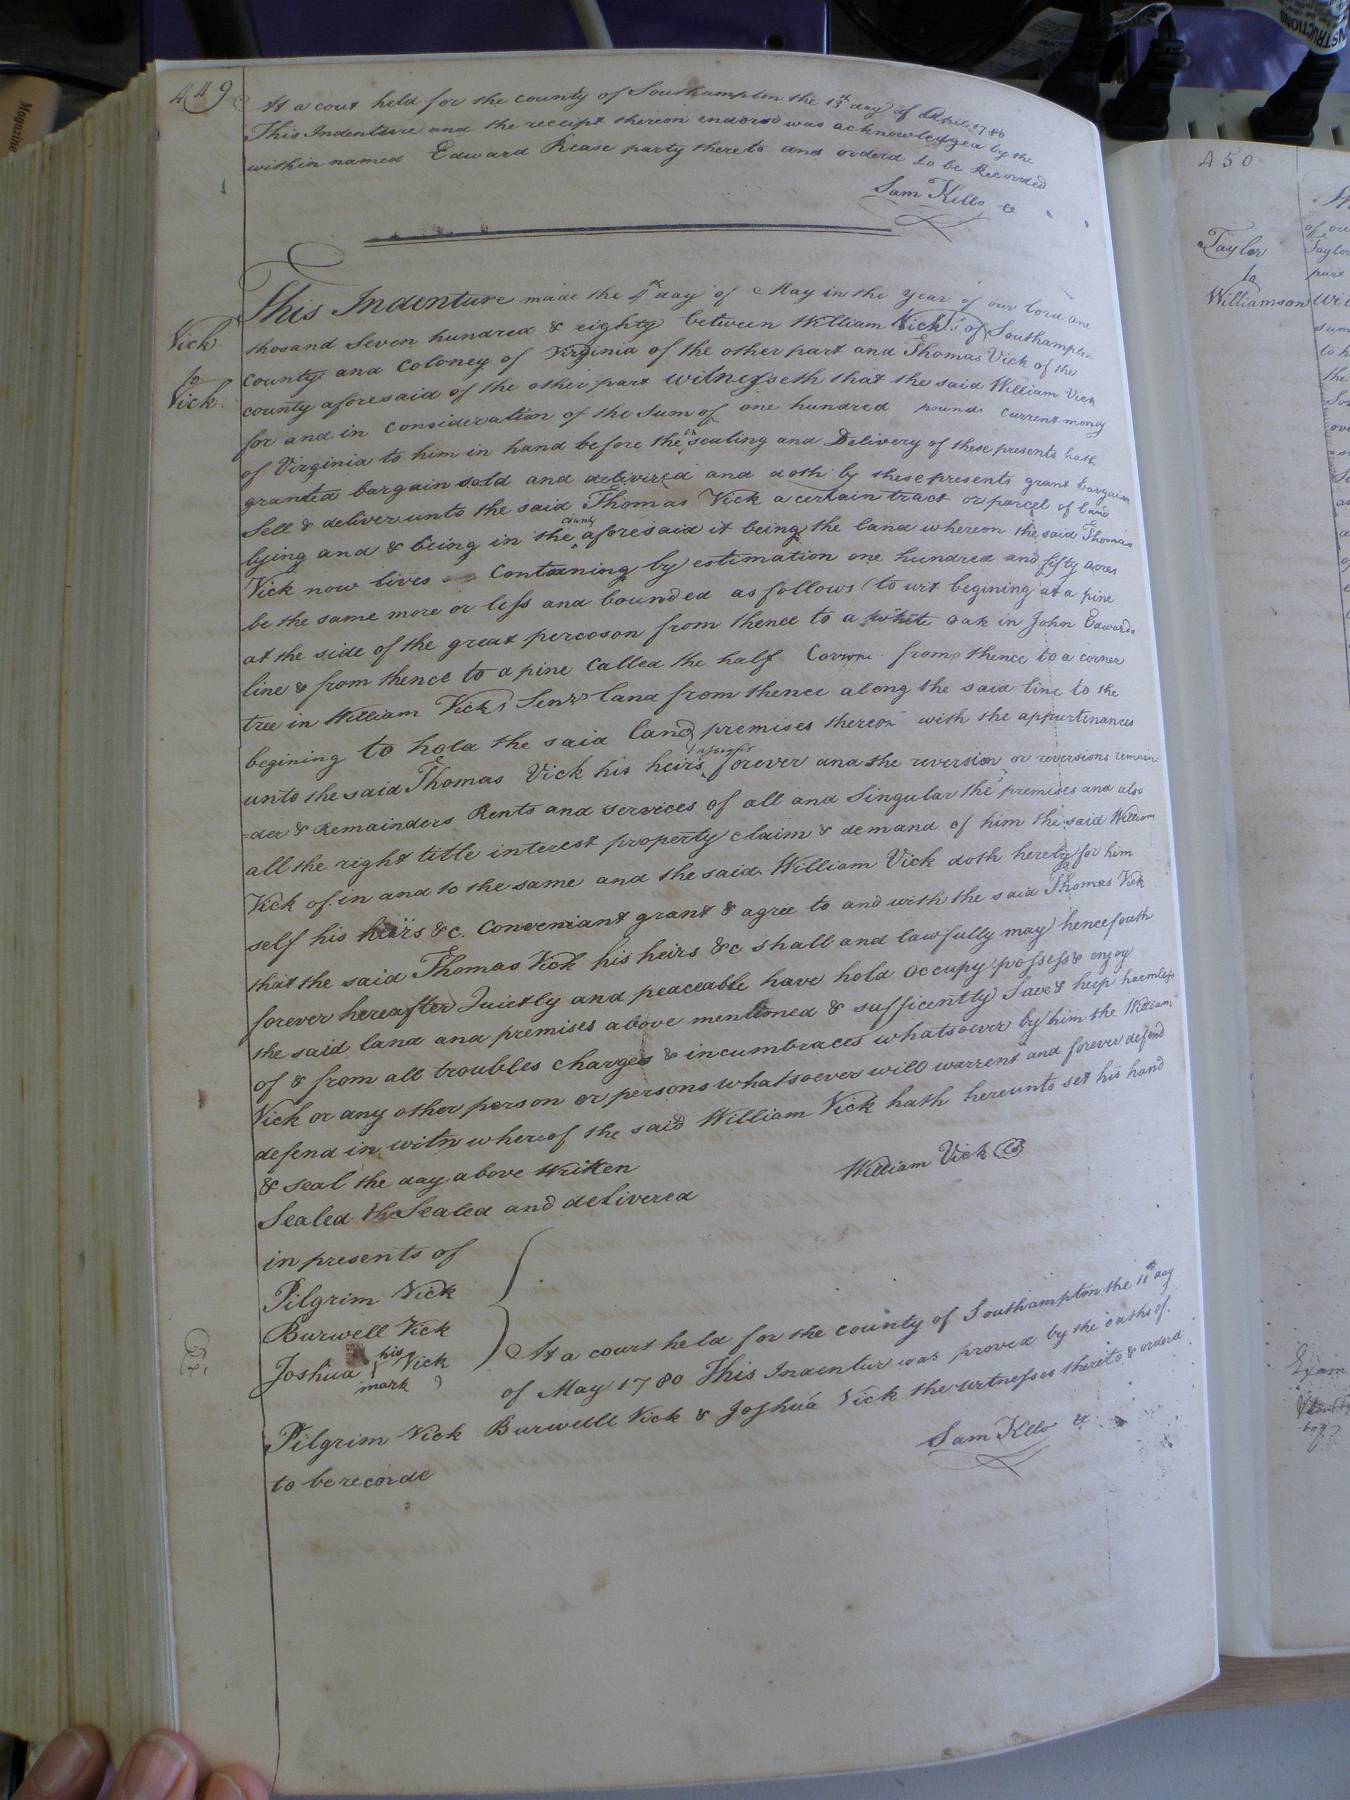 449
At a cout held for the county of Southampton the 13th day of April 1780
This Indenture and the receipt thereon endorsd was acknowledged by the
within named Edward Rease party thereto and orderd to be Recorded
Sam Kello
Vick
to
Vick
This Indenture made the 4th day of May in the year of our lord one
thosand Seven hundred & eighty between William Vick of Southampton
county and Coloney of Virginia of the other part and Thomas Vick of the
county aforesaid of the other part witnesseth that the said William Vick
for and in consideration of the Sum of one hundred pounds current money
of Virginia to him in hand before the sealing and Delivery of these presents hath
granted bargain sold and delivired and doth by these presents grant bargain
Sell & deliver unto the said Thomas Vick a certain tract or parcel of land
lying and & being in the county aforesaid it being the land whereon the said Thomas
Vick now lives Containing by estimation one hundred and fifty acres
be the same more or less and bounded as follows (to wit begining at a pine
at the side of the great percoson from thence to a white oak in John Edwards
line & from thence to a pine Called the half from thence to a corner
tree in William Vick Senr land from thence along the said line to the
begining to hold the said land premises thereon with the appurtenances
unto the said Thomas Vick his heirs forever and the reversion or reversions remain
=der & Remainders Rents and services of all and Singular the premises and also
all the right title interest property claim & demand of him the said William
Vick of in and to the same and the said William Vick doth hereby for him
self his heirs &c. Conveniant grant & agree to and with the said Thomas Vick
that the said Thomas Vick his heirs &c shall and lawfully may henceforth
forever hereafter Quietly and peaceable have hold occupy possess & enjoy
the said land and premises above mentioned & sufficently Save & keep harmless
of & from all troubles charges & incumbraces whatsoever by him the William
Vick or any other person or persons whatsoever will warrent and forever defend
defend in witns whereof the said William Vick hath hereunto set his hand
& seal the day above written
William Vick
Sealed th Sealed and delivered
in presents of
Pilgrim Vick
Burwell Vick
Joshua his Vick
mark
At a court held for the county of Southampton the 11th day
of May 1780 This Indentur was proved by the oaths of
Pilgrim Vick Burwell Vick & Joshua Vick the witnesses thereto & orderd
to be recorde
Sam Kllo
450
Taylor
to
Williamson
Exam